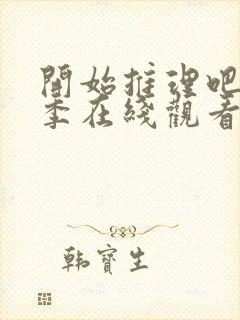 開始推理吧
季在綫觀看
韩寶生